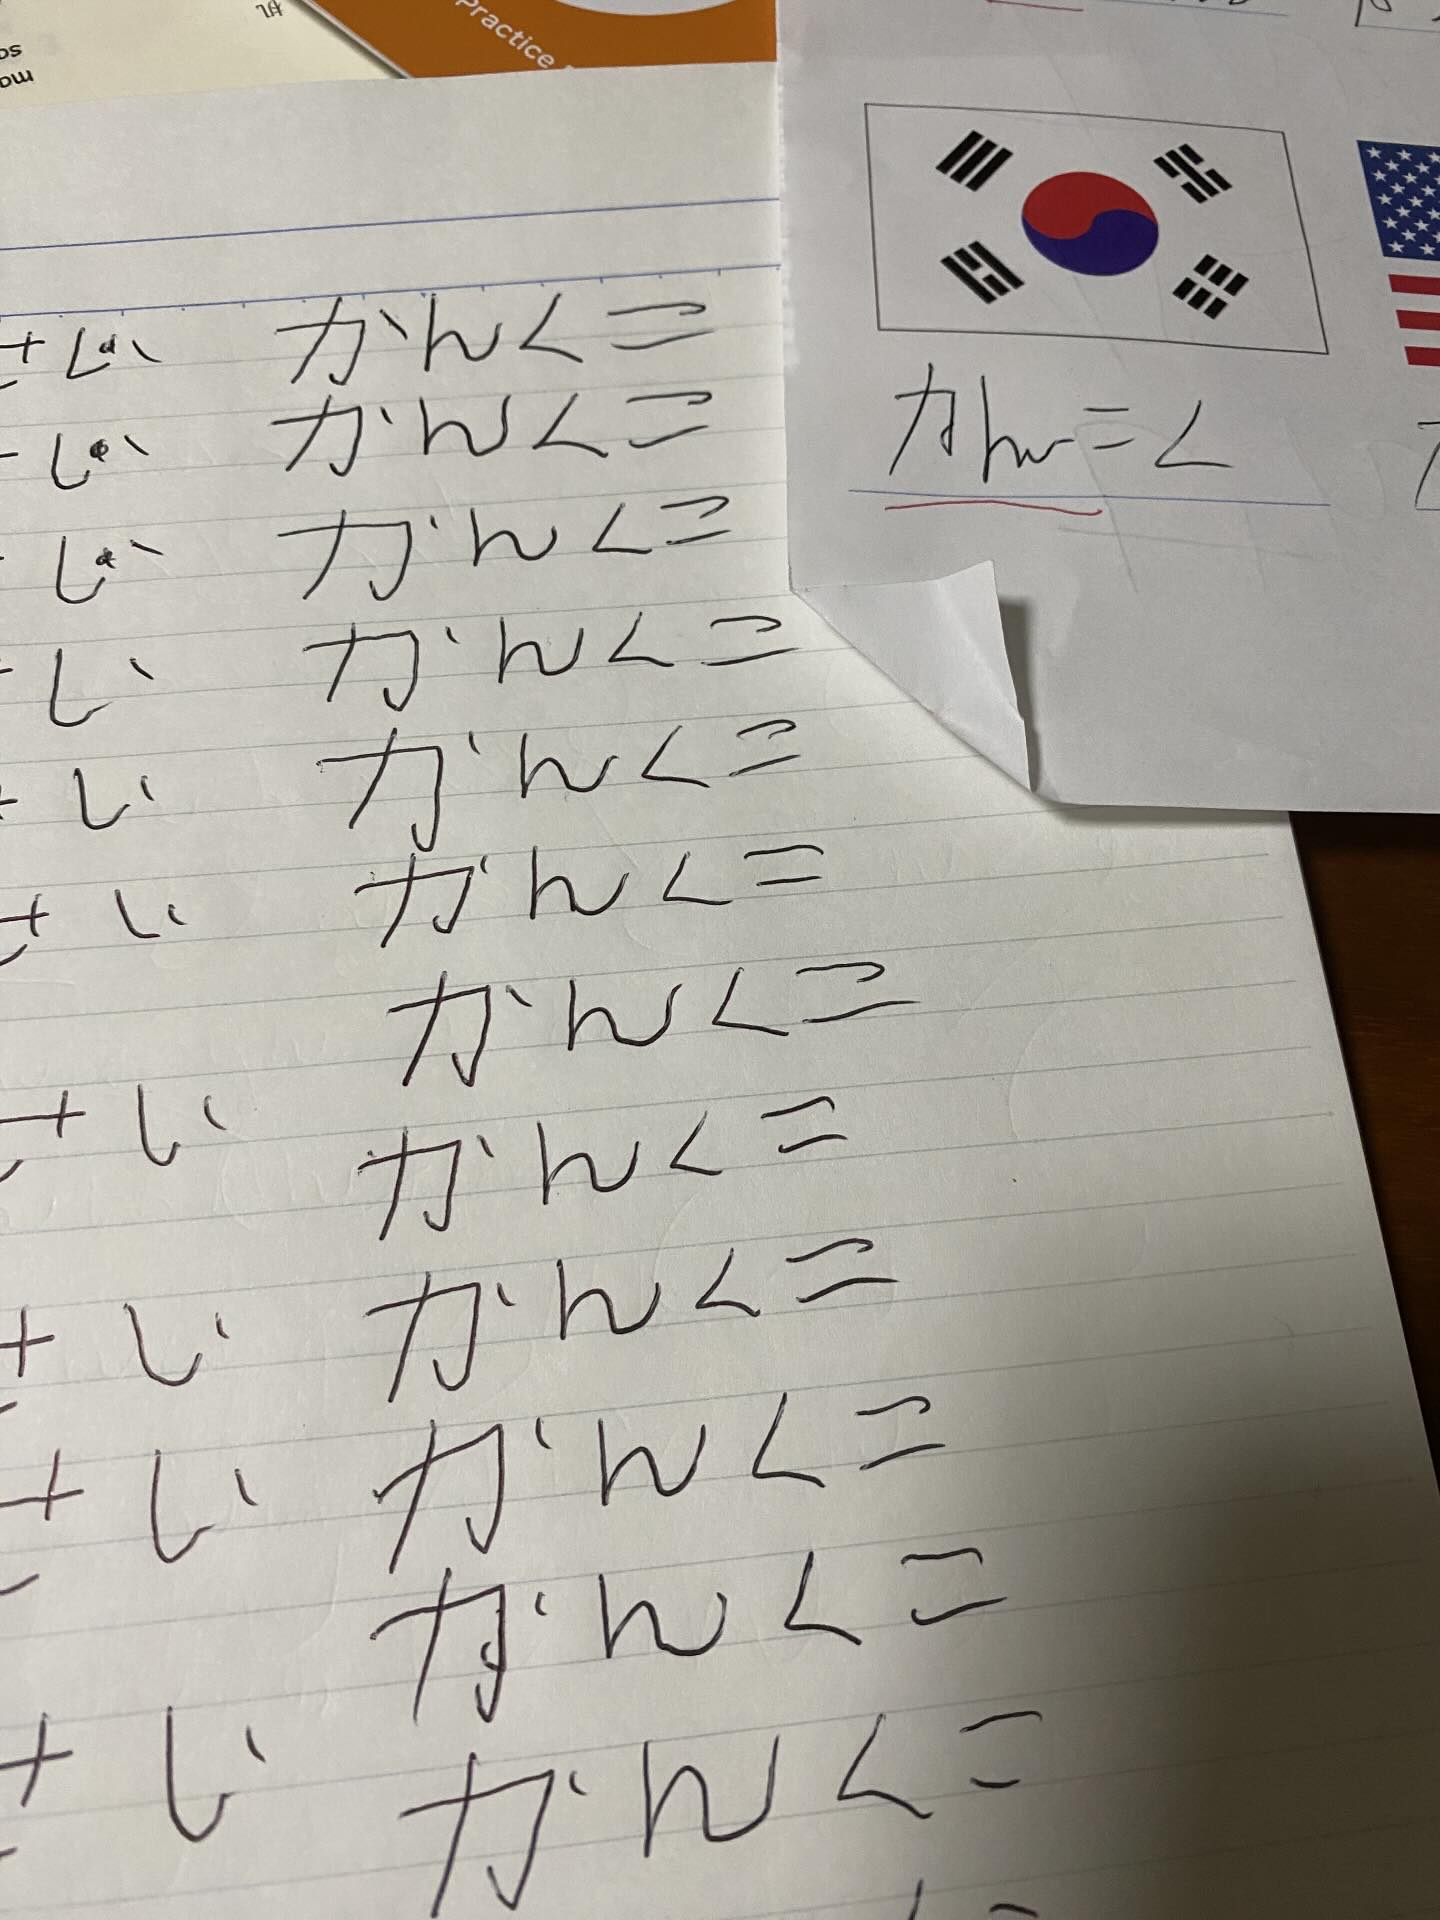 Practice
かんこく
さい かんくこ
さい かんくこ
さい かんくこ
さい かんくこ
さい かんくこ
さい かんくこ
かんくこ
さい かんくこ
さい かんくこ
さい かんくこ
かんくこ
さい かんくこ